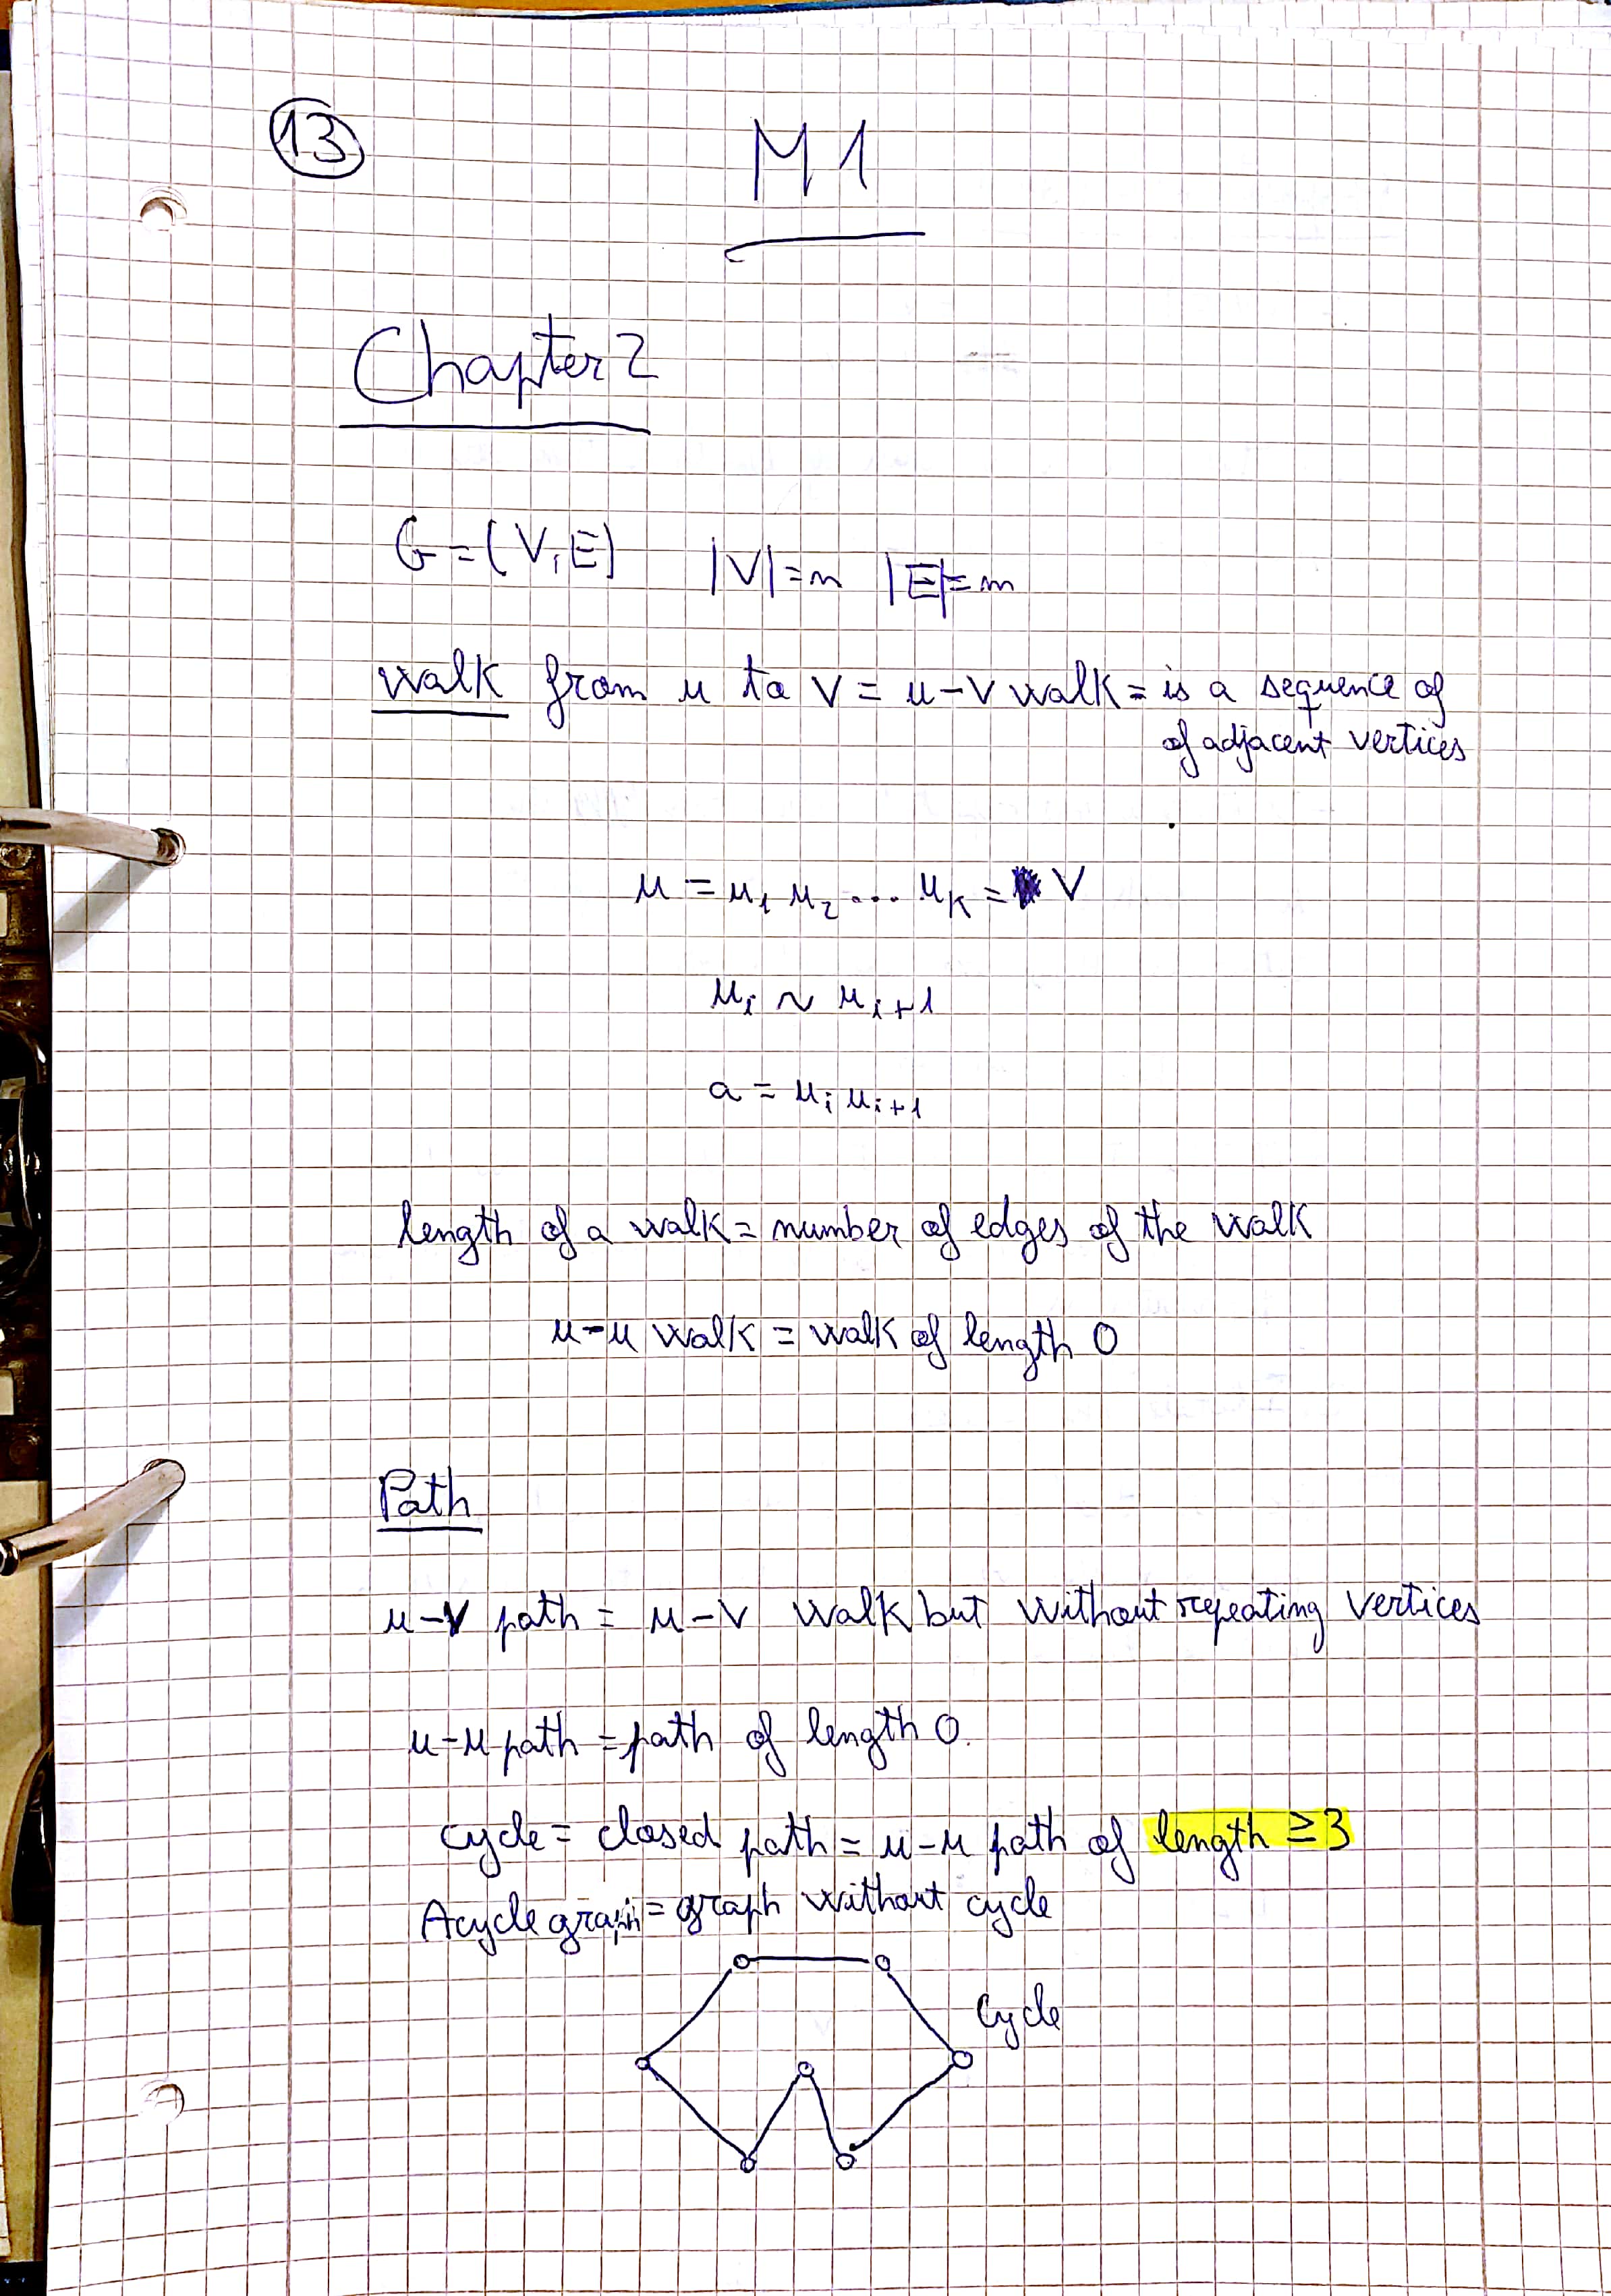 13
M1
Chapter 2
G = (V, E) |V| = n |E| = m
walk from u to v = u-v walk = is a sequence of
of adjacent vertices
u = u₁ u₂ ... uₖ = v
uᵢ ~ uᵢ₊₁
a = uᵢ uᵢ₊₁
length of a walk = number of edges of the walk
u-u walk = walk of length 0
Path
u-v path = u-v walk but without repeating vertices
u-u path = path of length 0.
cycle = closed path = u-u path of length ≥ 3
Acycle graph = graph without cycle
Cycle